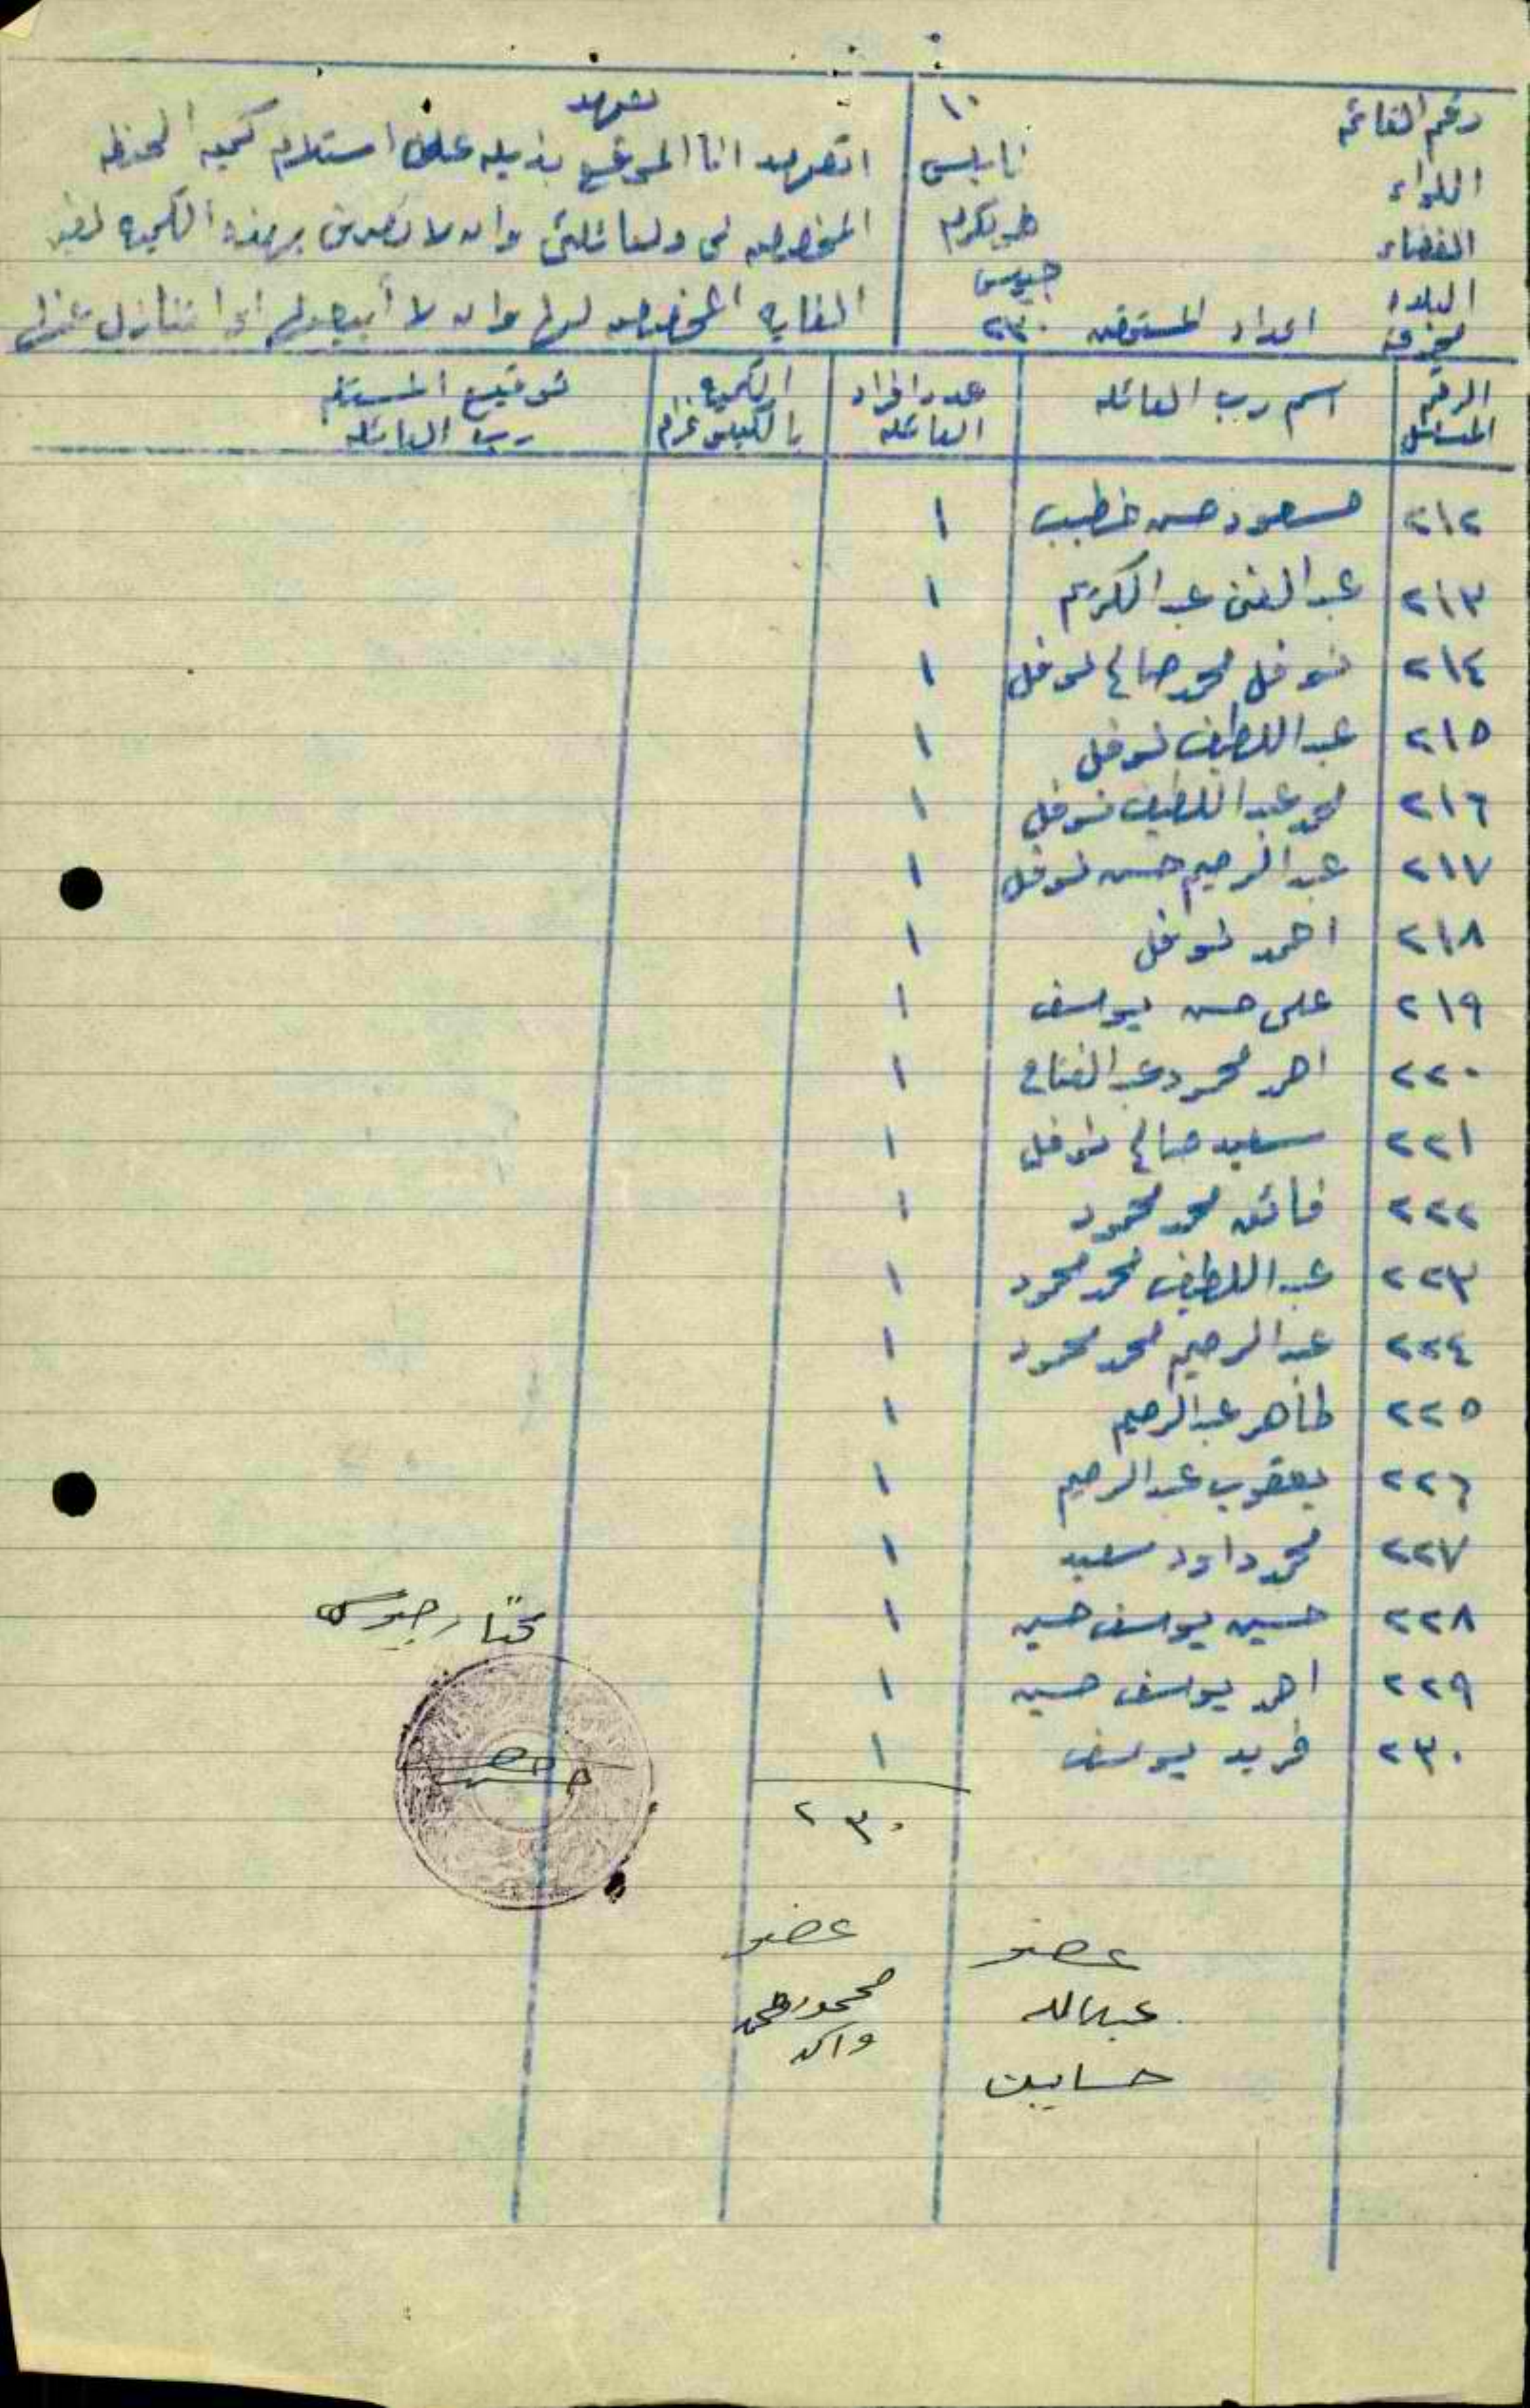 رقم القائمة ١٠
اللواء نابلس
القضاء طولكرم
البلدة جيوس
اعداد المستحقين ٢٣٠
تعهد
اتعهد انا الموقع بذيله على استلام كمية الحنطة
المخصصه لي ولعائلتي وان لا تصرف بهذه الكميه لغير
الغايه المخصصه لها وان لا أبيعها او اتنازل عنها
الرقم المتسلسل | اسم رب العائله | عدد افراد العائله | الكميه بالكيلو غرام | توقيع المستلم رب العائله
٢١٢ مسعود حسن خطيب ١
٢١٣ عبد الغني عبد الكريم ١
٢١٤ نوفل محمد صالح نوفل ١
٢١٥ عبد اللطيف نوفل ١
٢١٦ محمد عبد اللطيف نوفل ١
٢١٧ عبد الرحيم حسن نوفل ١
٢١٨ احمد نوفل ١
٢١٩ علي حسن يوسف ١
٢٢٠ احمد محمود عبد الفتاح ١
٢٢١ سعيد صالح نوفل ١
٢٢٢ فائق محمد محمود ١
٢٢٣ عبد اللطيف محمد محمود ١
٢٢٤ عبد الرحيم محمد محمود ١
٢٢٥ طاهر عبد الرحيم ١
٢٢٦ يعقوب عبد الرحيم ١
٢٢٧ محمد داود سعيد ١
٢٢٨ حسين يوسف حسين ١
٢٢٩ احمد يوسف حسين ١
٢٣٠ فريد يوسف ١
٢٣٠
مختار جيوس
عضو
عبدالله
عضو
محمود